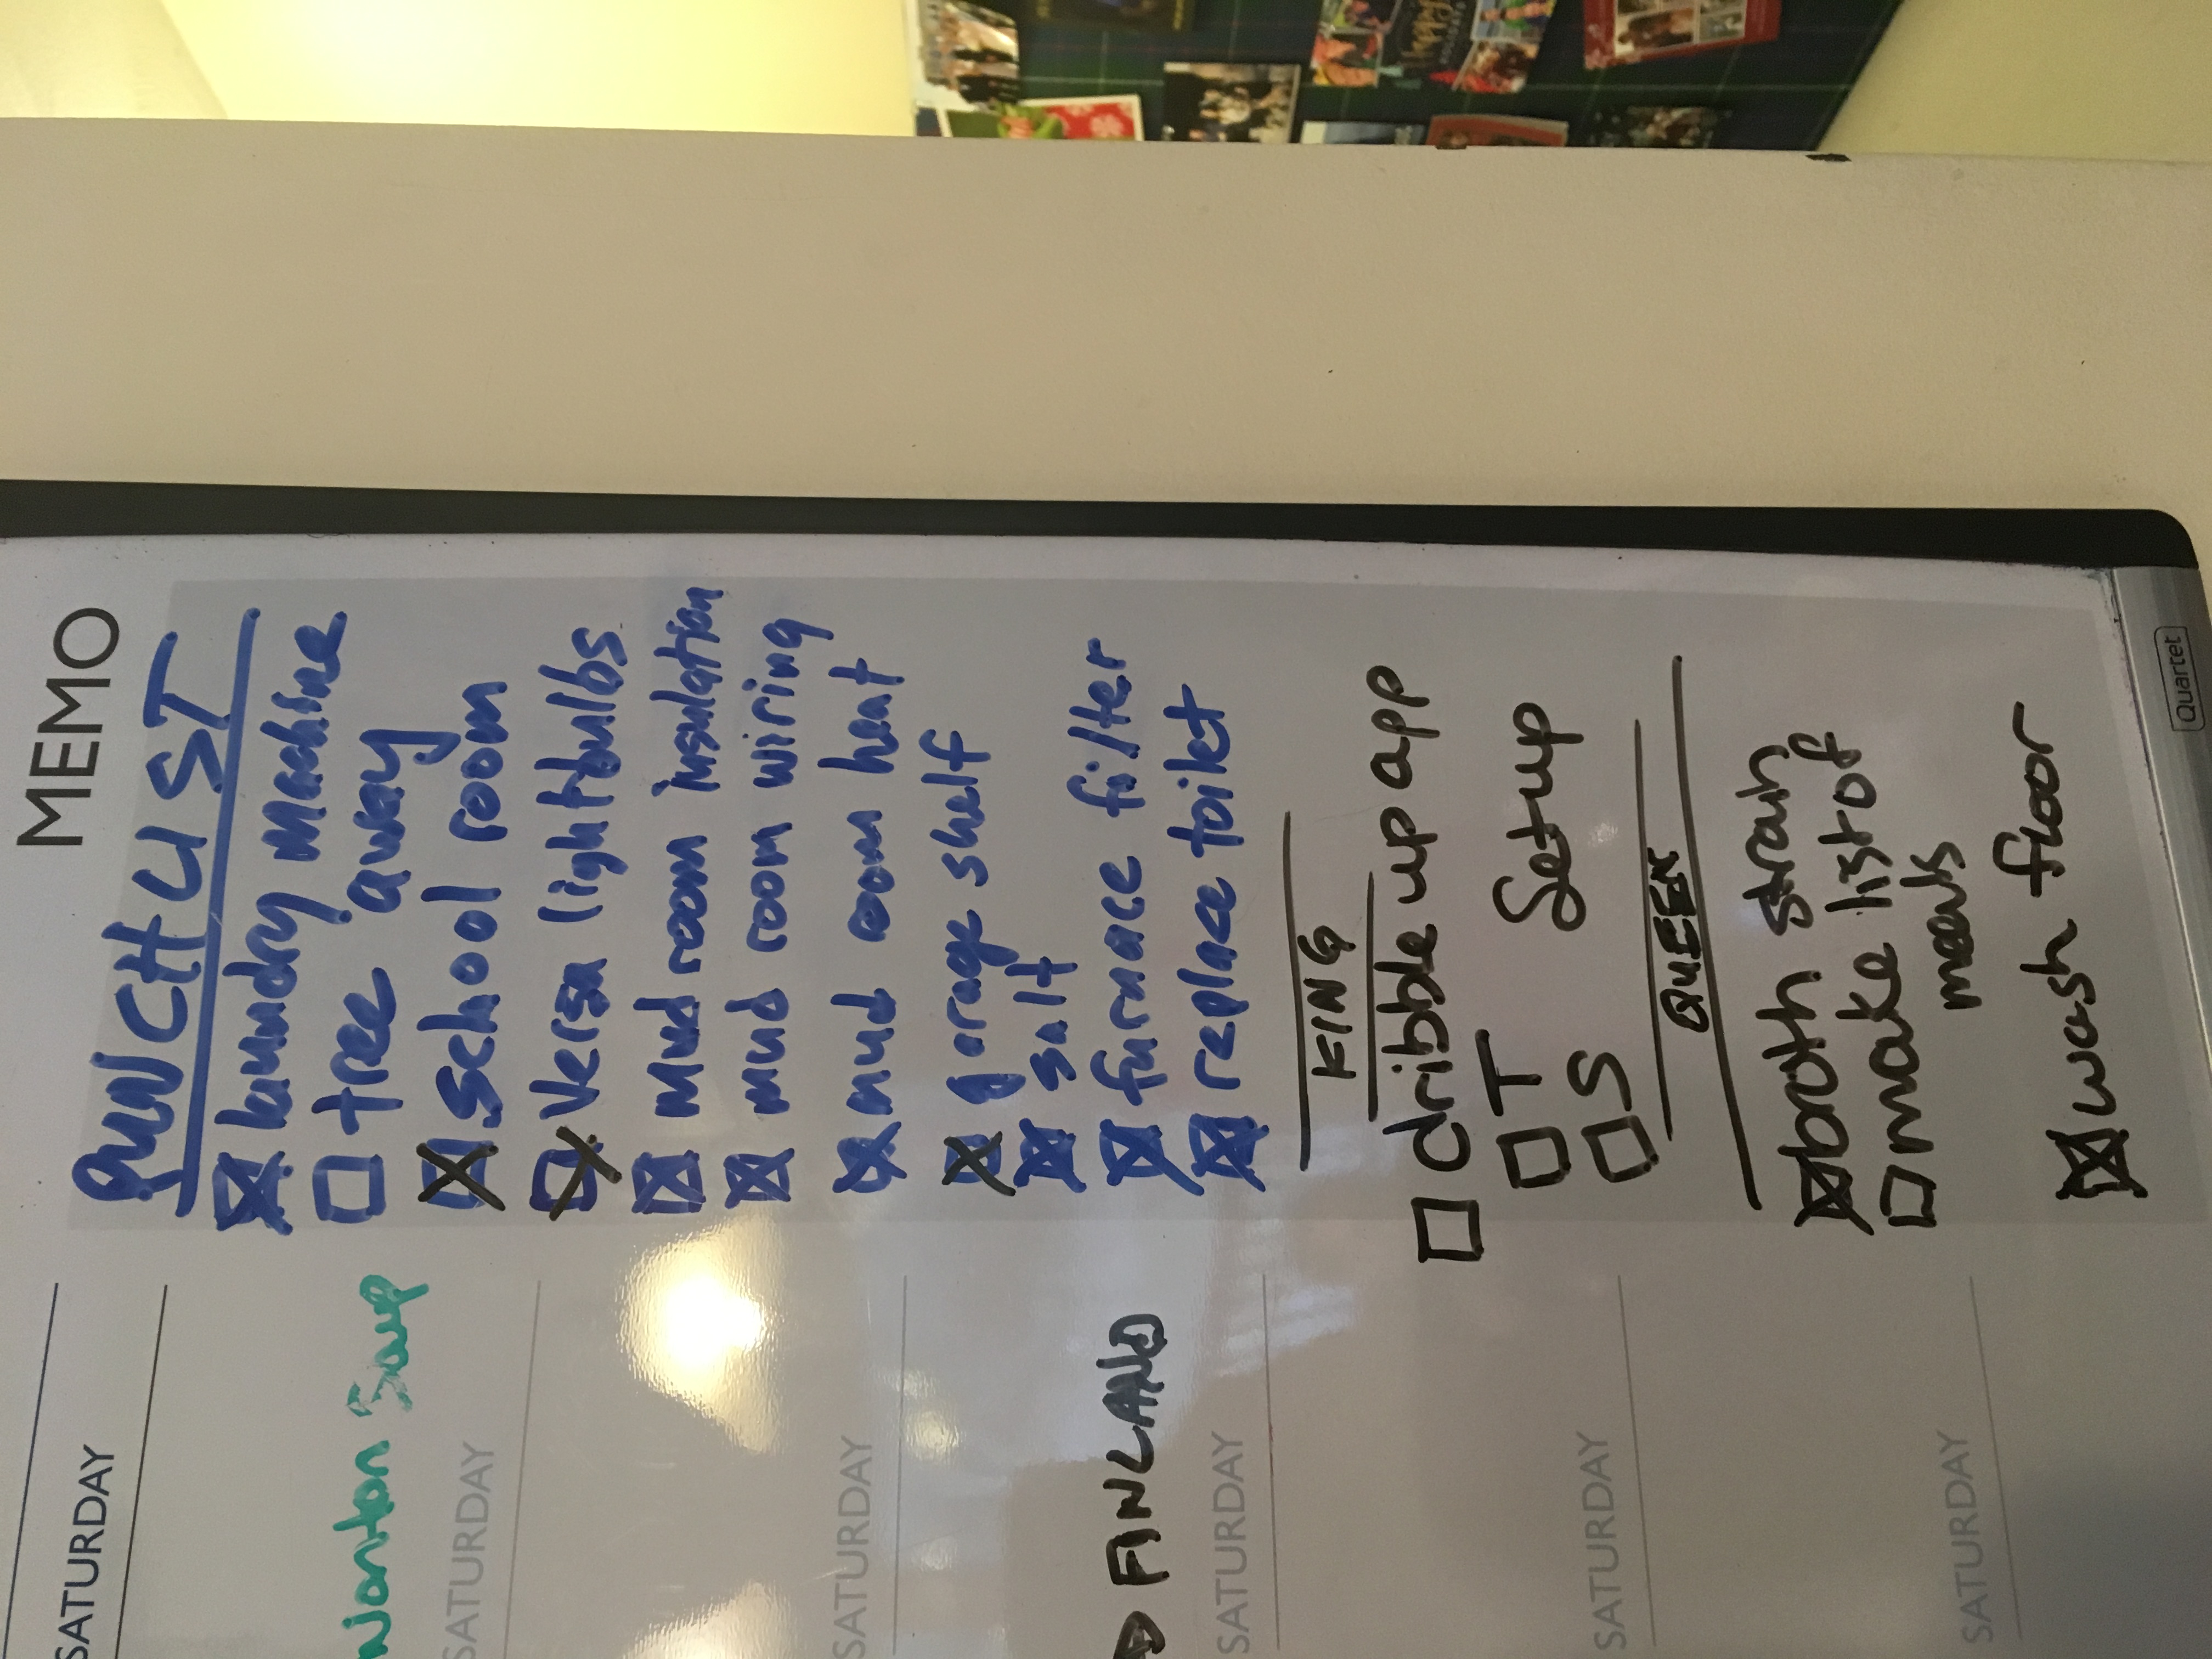 MEMO
PUNCHLIST
laundry machine
tree away
School room
Versa lightbulbs
Mud room insulation
mud room wiring
mud room heat
garage shelf
salt
furnace filter
replace toilet
KING
dribble up app
T Setup
S
QUEEN
broth strain
make list of
meals
wash floor
SATURDAY
Wonton Soup
SATURDAY
SATURDAY
FINLAND
SATURDAY
SATURDAY
SATURDAY
Quartet